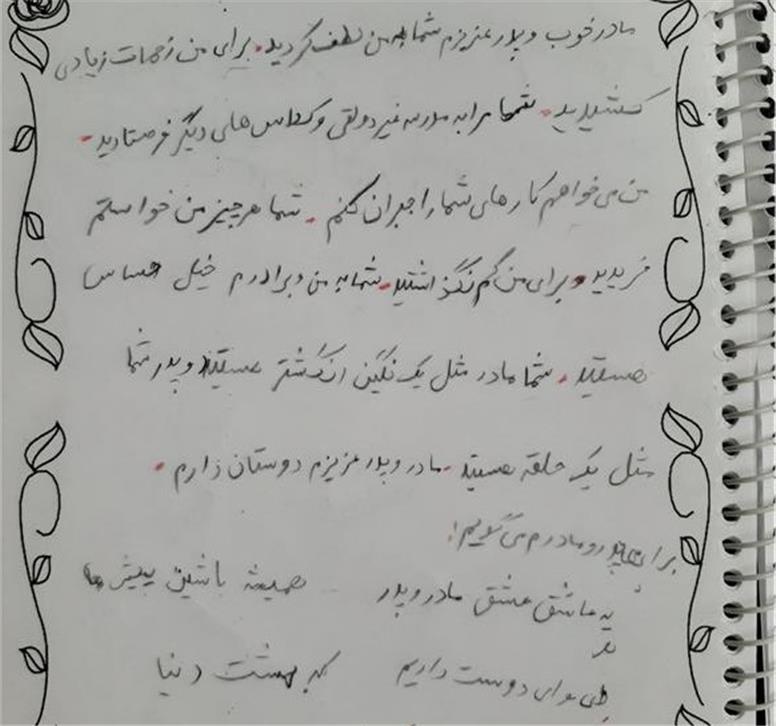 مادر خوب و پدر عزیزم شما به من لطف کردید. برای من زحمات زیادی
کشیدید. شما مرا به مدرسه غیر دولتی و کلاس های دیگر فرستادید.
من می خواهم کار های شما را جبران کنم. شما هر چیز من خواستم
خریدید و برای من کم نگذاشتید. شما به من و برادرم خیلی حساس
هستید. شما مادر مثل یک نگین انگشتر هستید و پدر شما
مثل یک حلقه هستید. مادر و پدر عزیزم دوستان دارم.
برای پدر و مادرم می گویم:
یه عاشق عشق مادر و پدر همیشه باشین پیش ما
دوست داریم بهشت دنیا